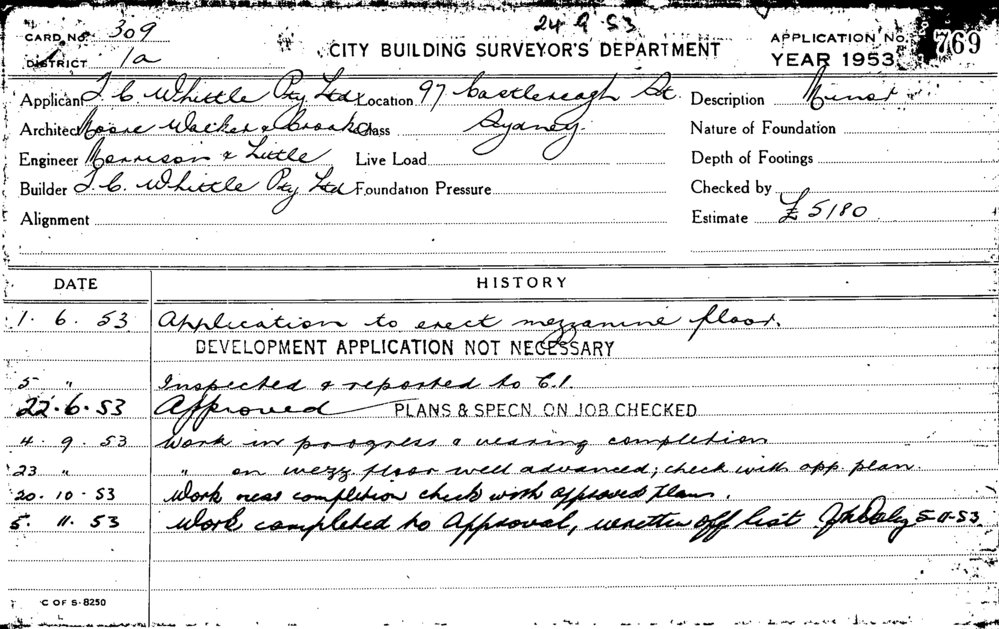 24 9 53
CARD No 309
CITY BUILDING SURVEYOR'S DEPARTMENT
APPLICATION No. 769
DISTRICT 1a
YEAR 1953
Applicant T. C. Whittle Pty Ltd Location 97 Castlereagh St. Description Minor
Architect Moore Walker & Crooks Class Sydney. Nature of Foundation
Engineer Morrison & Little Live Load Depth of Footings
Builder T. C. Whittle Pty Ltd Foundation Pressure Checked by
Alignment Estimate £5180
DATE HISTORY
1. 6. 53 Application to erect mezzanine floor.
DEVELOPMENT APPLICATION NOT NECESSARY
5 " Inspected & reported to C.I.
22.6.53 Approved PLANS & SPECN. ON JOB CHECKED
4. 9. 53 Work in progress & nearing completion
23 " " on mezz floor well advanced; check with app. plan
20. 10. 53 Work near completion check with approved plans.
5. 11. 53 Work completed to Approval, written off list 5-11-53
C OF S-8250